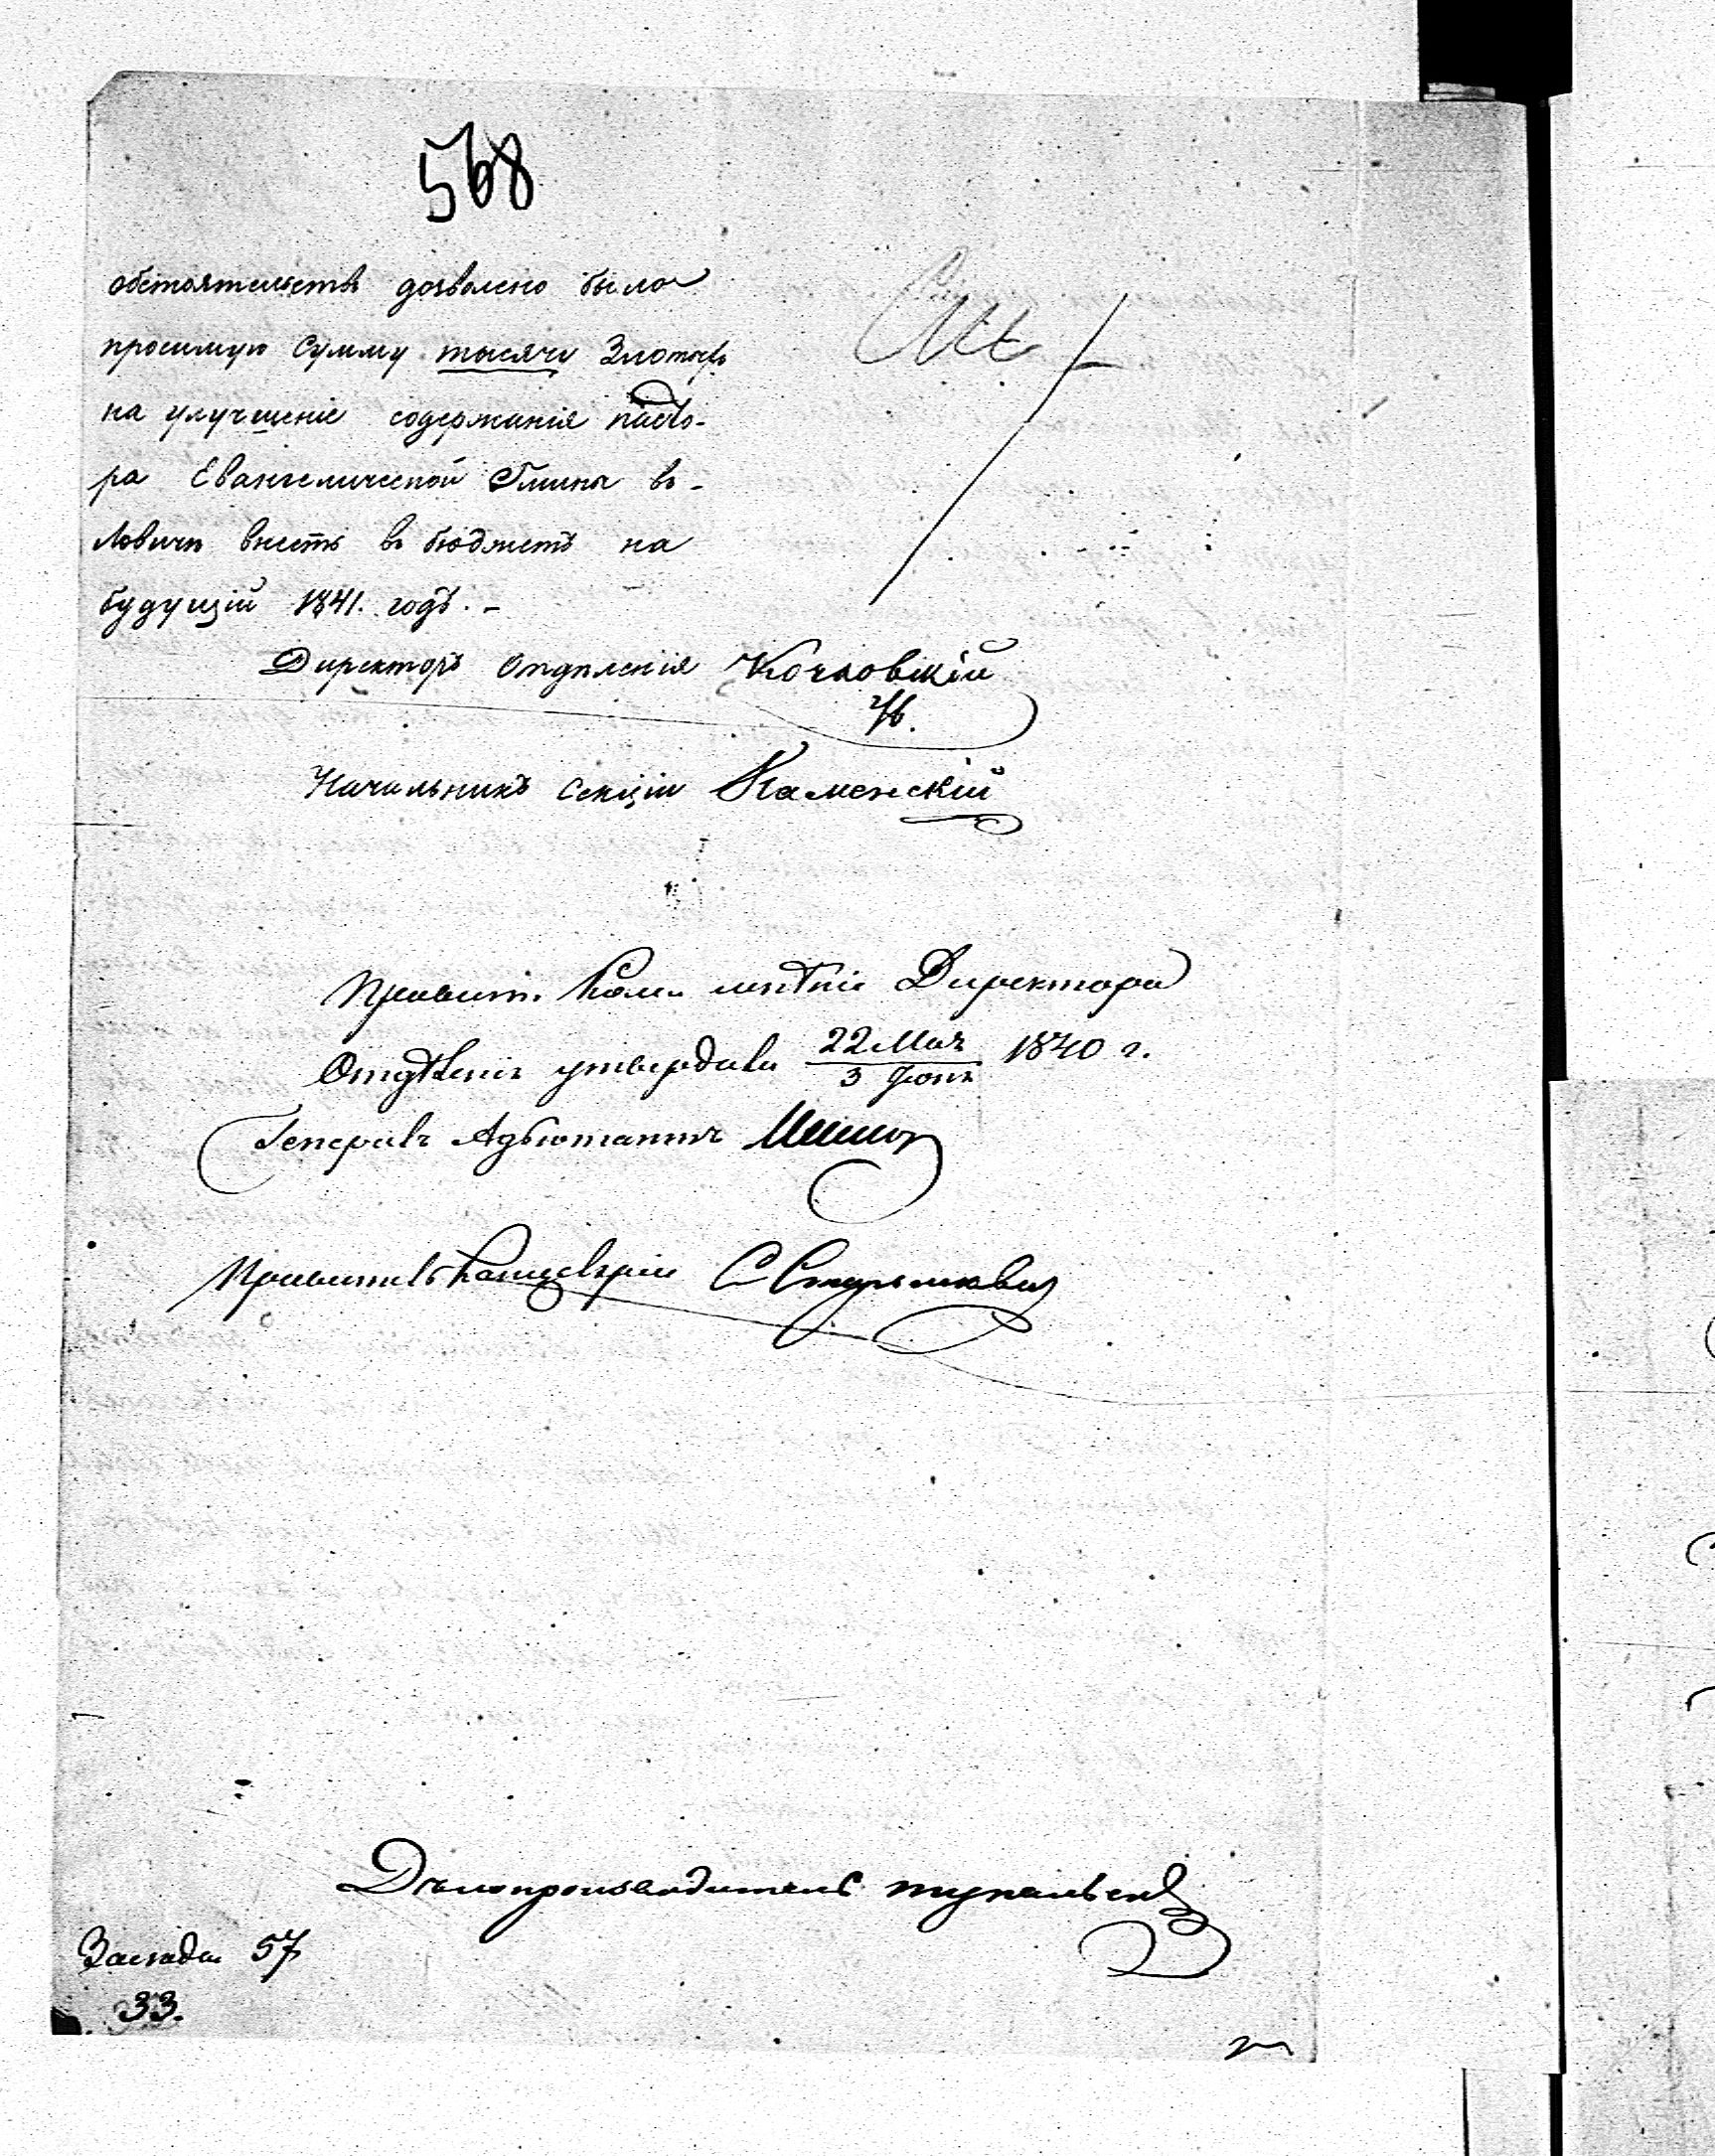 568
обстоятельствъ дозволено было
просимую сумму тысячу Злотыхъ
на улучшеніе содержанія Пасто-
ра Евангелической Гмины въ-
Ловичѣ внесть въ бюджетъ на
будущій 1841. годъ. -
Директоръ Отдѣленія
Начальникъ Секціи Каменскій
Правит. Ком. мнѣніе Директора
Отдѣленія утвердила 22 Мая / 3 Іюня 1840 г.
Генералъ Адъютантъ
Правитель Канцеляріи
Дѣлопроизводитель
57
33.